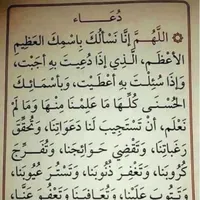 دُعَـــاء
اَللّٰهُمَّ إِنَّا نَسْأَلُكَ بِاسْمِكَ الْعَظِيمِ
الْأَعْظَمِ، الَّذِي إِذَا دُعِيتَ بِهِ أَجَبْتَ،
وَإِذَا سُئِلْتَ بِهِ أَعْطَيْتَ، وَبِأَسْمَائِكَ
الْحُسْنَى كُلِّهَا مَا عَلِمْنَا مِنْهَا وَمَا لَمْ
نَعْلَمْ، أَنْ تَسْتَجِيبَ لَنَا دَعَوَاتِنَا، وَتُحَقِّقَ
رَغَبَاتِنَا، وَتَقْضِيَ حَوَائِجَنَا، وَتُفَرِّجَ
كُرُوبَنَا، وَتَغْفِرَ ذُنُوبَنَا، وَتَسْتُرَ عُيُوبَنَا،
وَتَتُوبَ عَلَيْنَا، وَتُعَافِيَنَا وَتَعْفُوَ عَنَّا،